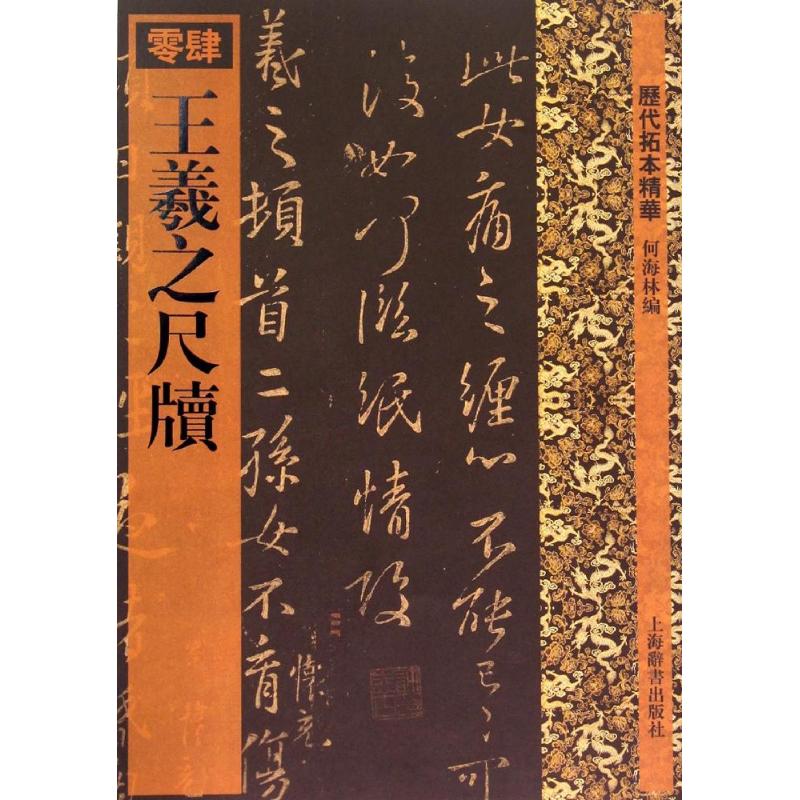 零肆
王羲之尺牘
歷代拓本精華
何海林編
上海辭書出版社
此女痛之纏心不能已已可
復如何臨紙情酸
羲之頓首二孫女不育傷